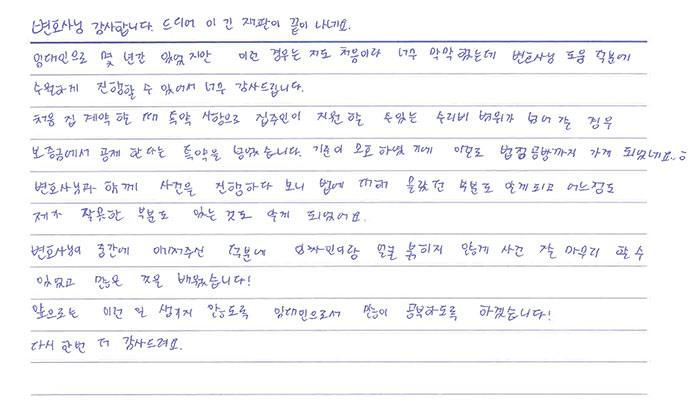 변호사님 감사합니다. 드디어 이 긴 재판이 끝이 나네요.
임대인으로 몇 년간 있었지만 이런 경우는 저도 처음이라 너무 막막했는데 변호사님 도움 덕분에
수월하게 진행할 수 있어서 너무 감사드립니다.
처음 집 계약 할 때 특약 사항으로 집주인이 지원 할 수있는 수리비 범위가 넘어 갈 경우
보증금에서 공제 한다는 특약을 넣었습니다. 기준이 모호 하였 기에 이걸로 법정공방까지 가게 되었네요..ㅎ
변호사님과 함께 사건을 진행하다 보니 법에 대해 몰랐던 부분도 알게되고 어느정도
제가 잘못한 부분도 있는 것도 알게 되었어요.
변호사님이 중간에 이어주신 덕분에 임차인이랑 얼굴 붉히지 않게 사건 잘 마무리 할 수
있었고 많은 것을 배웠습니다!
앞으로는 이런 일 생기지 않도록 임대인으로서 많이 공부하도록 하겠습니다!
다시 한번 더 감사드려요.